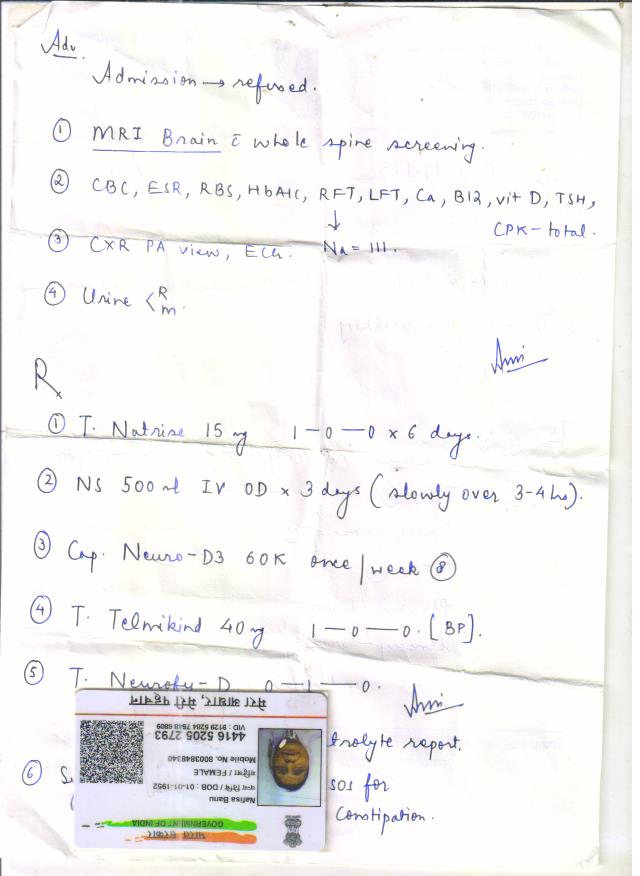 Adv.
Admission → refused.
① MRI Brain c̄ whole spine screening.
② CBC, ESR, RBS, HbA1C, RFT, LFT, Ca, B12, vit D, TSH,
CPK-total.
↓
Na = 111.
③ CXR PA view, ECG.
④ Urine < R
m.
Rx
① T. Natrise 15 mg 1-0-0 x 6 days.
② NS 500 ml IV OD x 3 days (slowly over 3-4 hrs).
③ Cap. Neuro-D3 60K once/week ⑧
④ T. Telmikind 40 mg 1-0-0. [BP].
⑤ T. -D 0-1-0.
trolyte report.
⑥ S sos for
Constipation.
भारत सरकार
GOVERNMENT OF INDIA
Nafisa Banu
जन्म तिथि / DOB : 01-01-1952
महिला / FEMALE
Mobile No. 8003848340
4416 5205 2793
VID : 9129 5264 7618 6809
मेरा आधार, मेरी पहचान